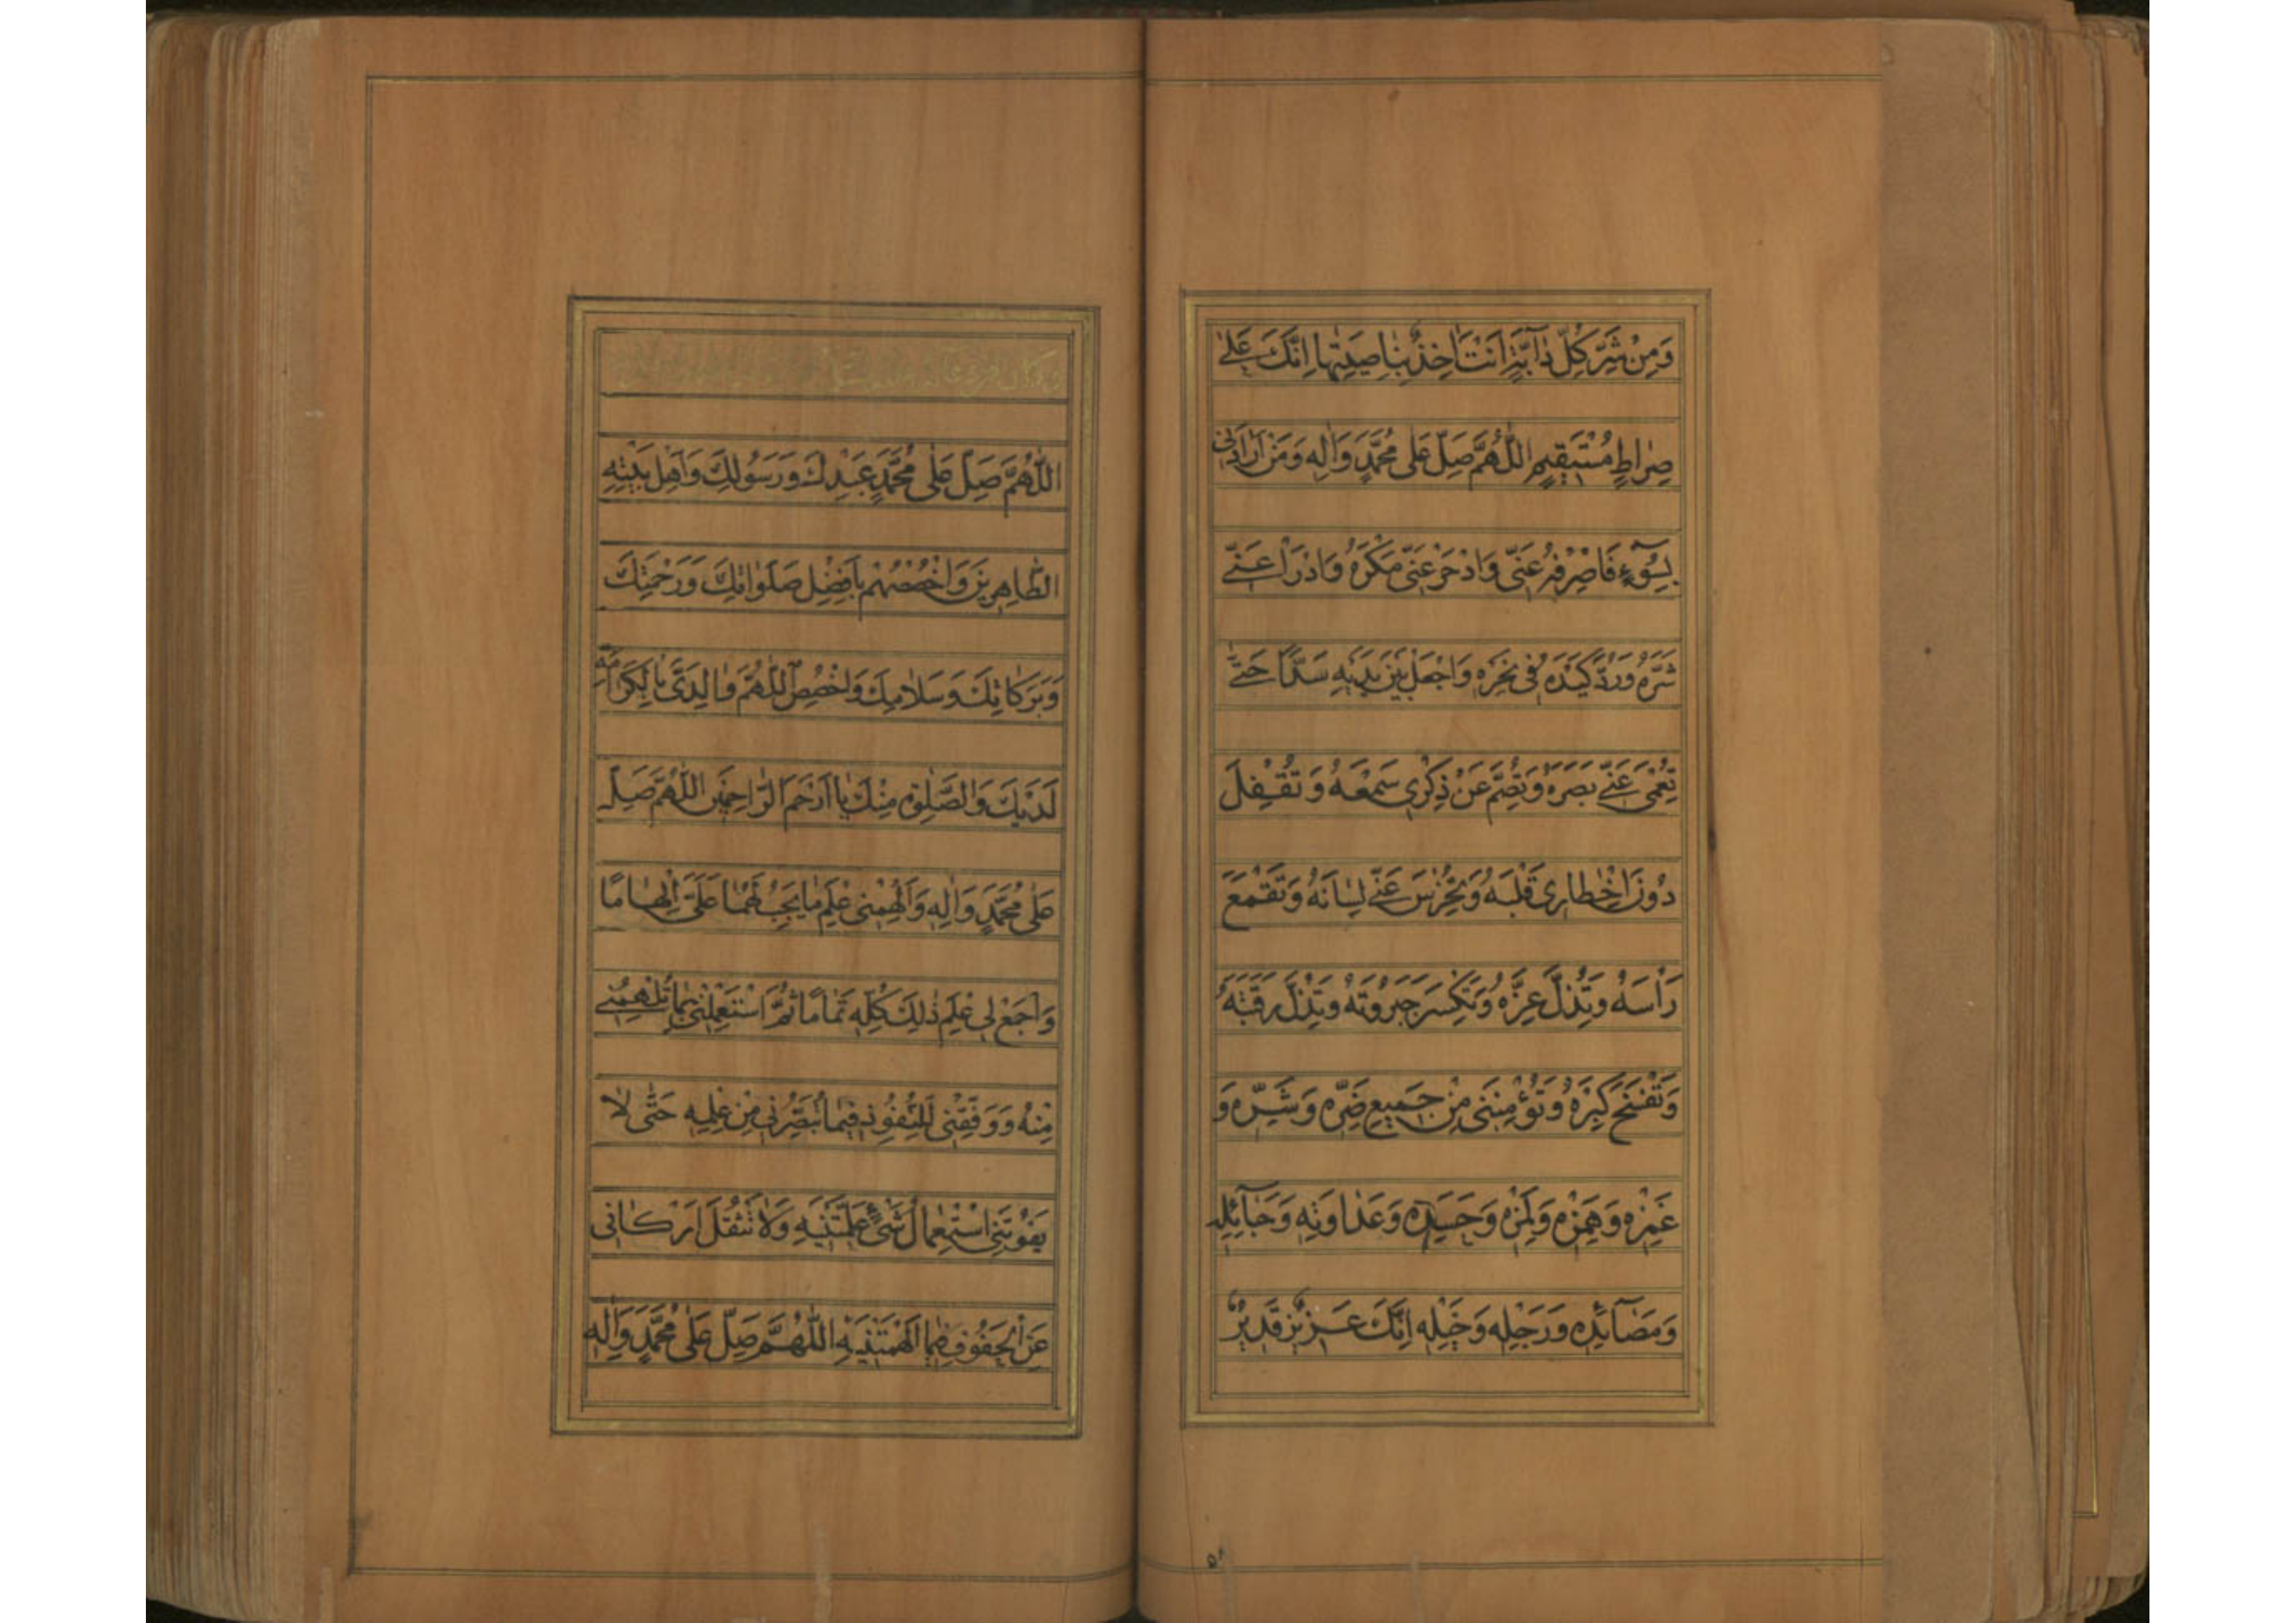 وَمِنْ شَرِّ كُلِّ دٰآبَّةٍ اَنْتَ اٰخِذٌ بِنٰاصِيَتِهٰا اِنَّكَ عَلىٰ
صِرٰاطٍ مُسْتَقِيمٍ اَللّٰهُمَّ صَلِّ عَلىٰ مُحَمَّدٍ وَاٰلِهِ وَمَنْ اَرٰادَنِى
بِسُوٓءٍ فَاصْرِفْهُ عَنِّى وَادْحَرْ عَنِّى مَكْرَهُ وَادْرَأْ عَنِّى
شَرَّهُ وَرُدَّ كَيْدَهُ فِى نَحْرِهِ وَاجْعَلْ بَيْنَ يَدَيْهِ سَدًّا حَتّٰى
تُعْمِىَ عَنِّى بَصَرَهُ وَتُصِمَّ عَنْ ذِكْرِى سَمْعَهُ وَتُقْفِلَ
دُونَ اِخْطٰارِى قَلْبَهُ وَتُخْرِسَ عَنِّى لِسٰانَهُ وَتَقْمَعَ
رَأْسَهُ وَتُذِلَّ عِزَّهُ وَتَكْسِرَ جَبَرُوتَهُ وَتُذِلَّ رَقَبَتَهُ
وَتَفْسَخَ كِبْرَهُ وَتُؤْمِنَنِى مِنْ جَمِيعِ ضَرِّهِ وَشَرِّهِ وَ
غَمْزِهِ وَهَمْزِهِ وَلَمْزِهِ وَحَسَدِهِ وَعَدٰاوَتِهِ وَحَبٰآئِلِهِ
وَمَصٰآئِدِهِ وَرَجِلِهِ وَخَيْلِهِ اِنَّكَ عَزِيزٌ قَدِيرٌ
اَللّٰهُمَّ صَلِّ عَلىٰ مُحَمَّدٍ عَبْدِكَ وَرَسُولِكَ وَاَهْلِ بَيْتِهِ
الطّٰاهِرِينَ وَاخْصُصْهُمْ بِاَفْضَلِ صَلَوٰاتِكَ وَرَحْمَتِكَ
وَبَرَكٰاتِكَ وَسَلٰامِكَ وَاخْصُصِ اللّٰهُمَّ وٰالِدَىَّ بِالْكَرٰامَةِ
لَدَيْكَ وَالصَّلٰوةِ مِنْكَ يٰا اَرْحَمَ الرّٰاحِمِينَ اَللّٰهُمَّ صَلِّ
عَلىٰ مُحَمَّدٍ وَاٰلِهِ وَاَلْهِمْنِى عِلْمَ مٰا يَجِبُ لَهُمٰا عَلَىَّ اِلْهٰامًا
وَاجْمَعْ لِى عِلْمَ ذٰلِكَ كُلِّهِ تَمٰامًا ثُمَّ اسْتَعْمِلْنِى بِمٰا تُلْهِمُنِى
مِنْهُ وَوَفِّقْنِى لِلنُّفُوذِ فِيمٰا تُبَصِّرُنِى مِنْ عِلْمِهِ حَتّٰى لٰا
يَفُوتَنِى اسْتِعْمٰالُ شَىْءٍ عَلَّمْتَنِيهِ وَلٰا تَثْقُلَ اَرْكٰانِى
عَنِ الْحَفُوفِ فِيمٰا اَلْهَمْتَنِيهِ اَللّٰهُمَّ صَلِّ عَلىٰ مُحَمَّدٍ وَاٰلِهِ